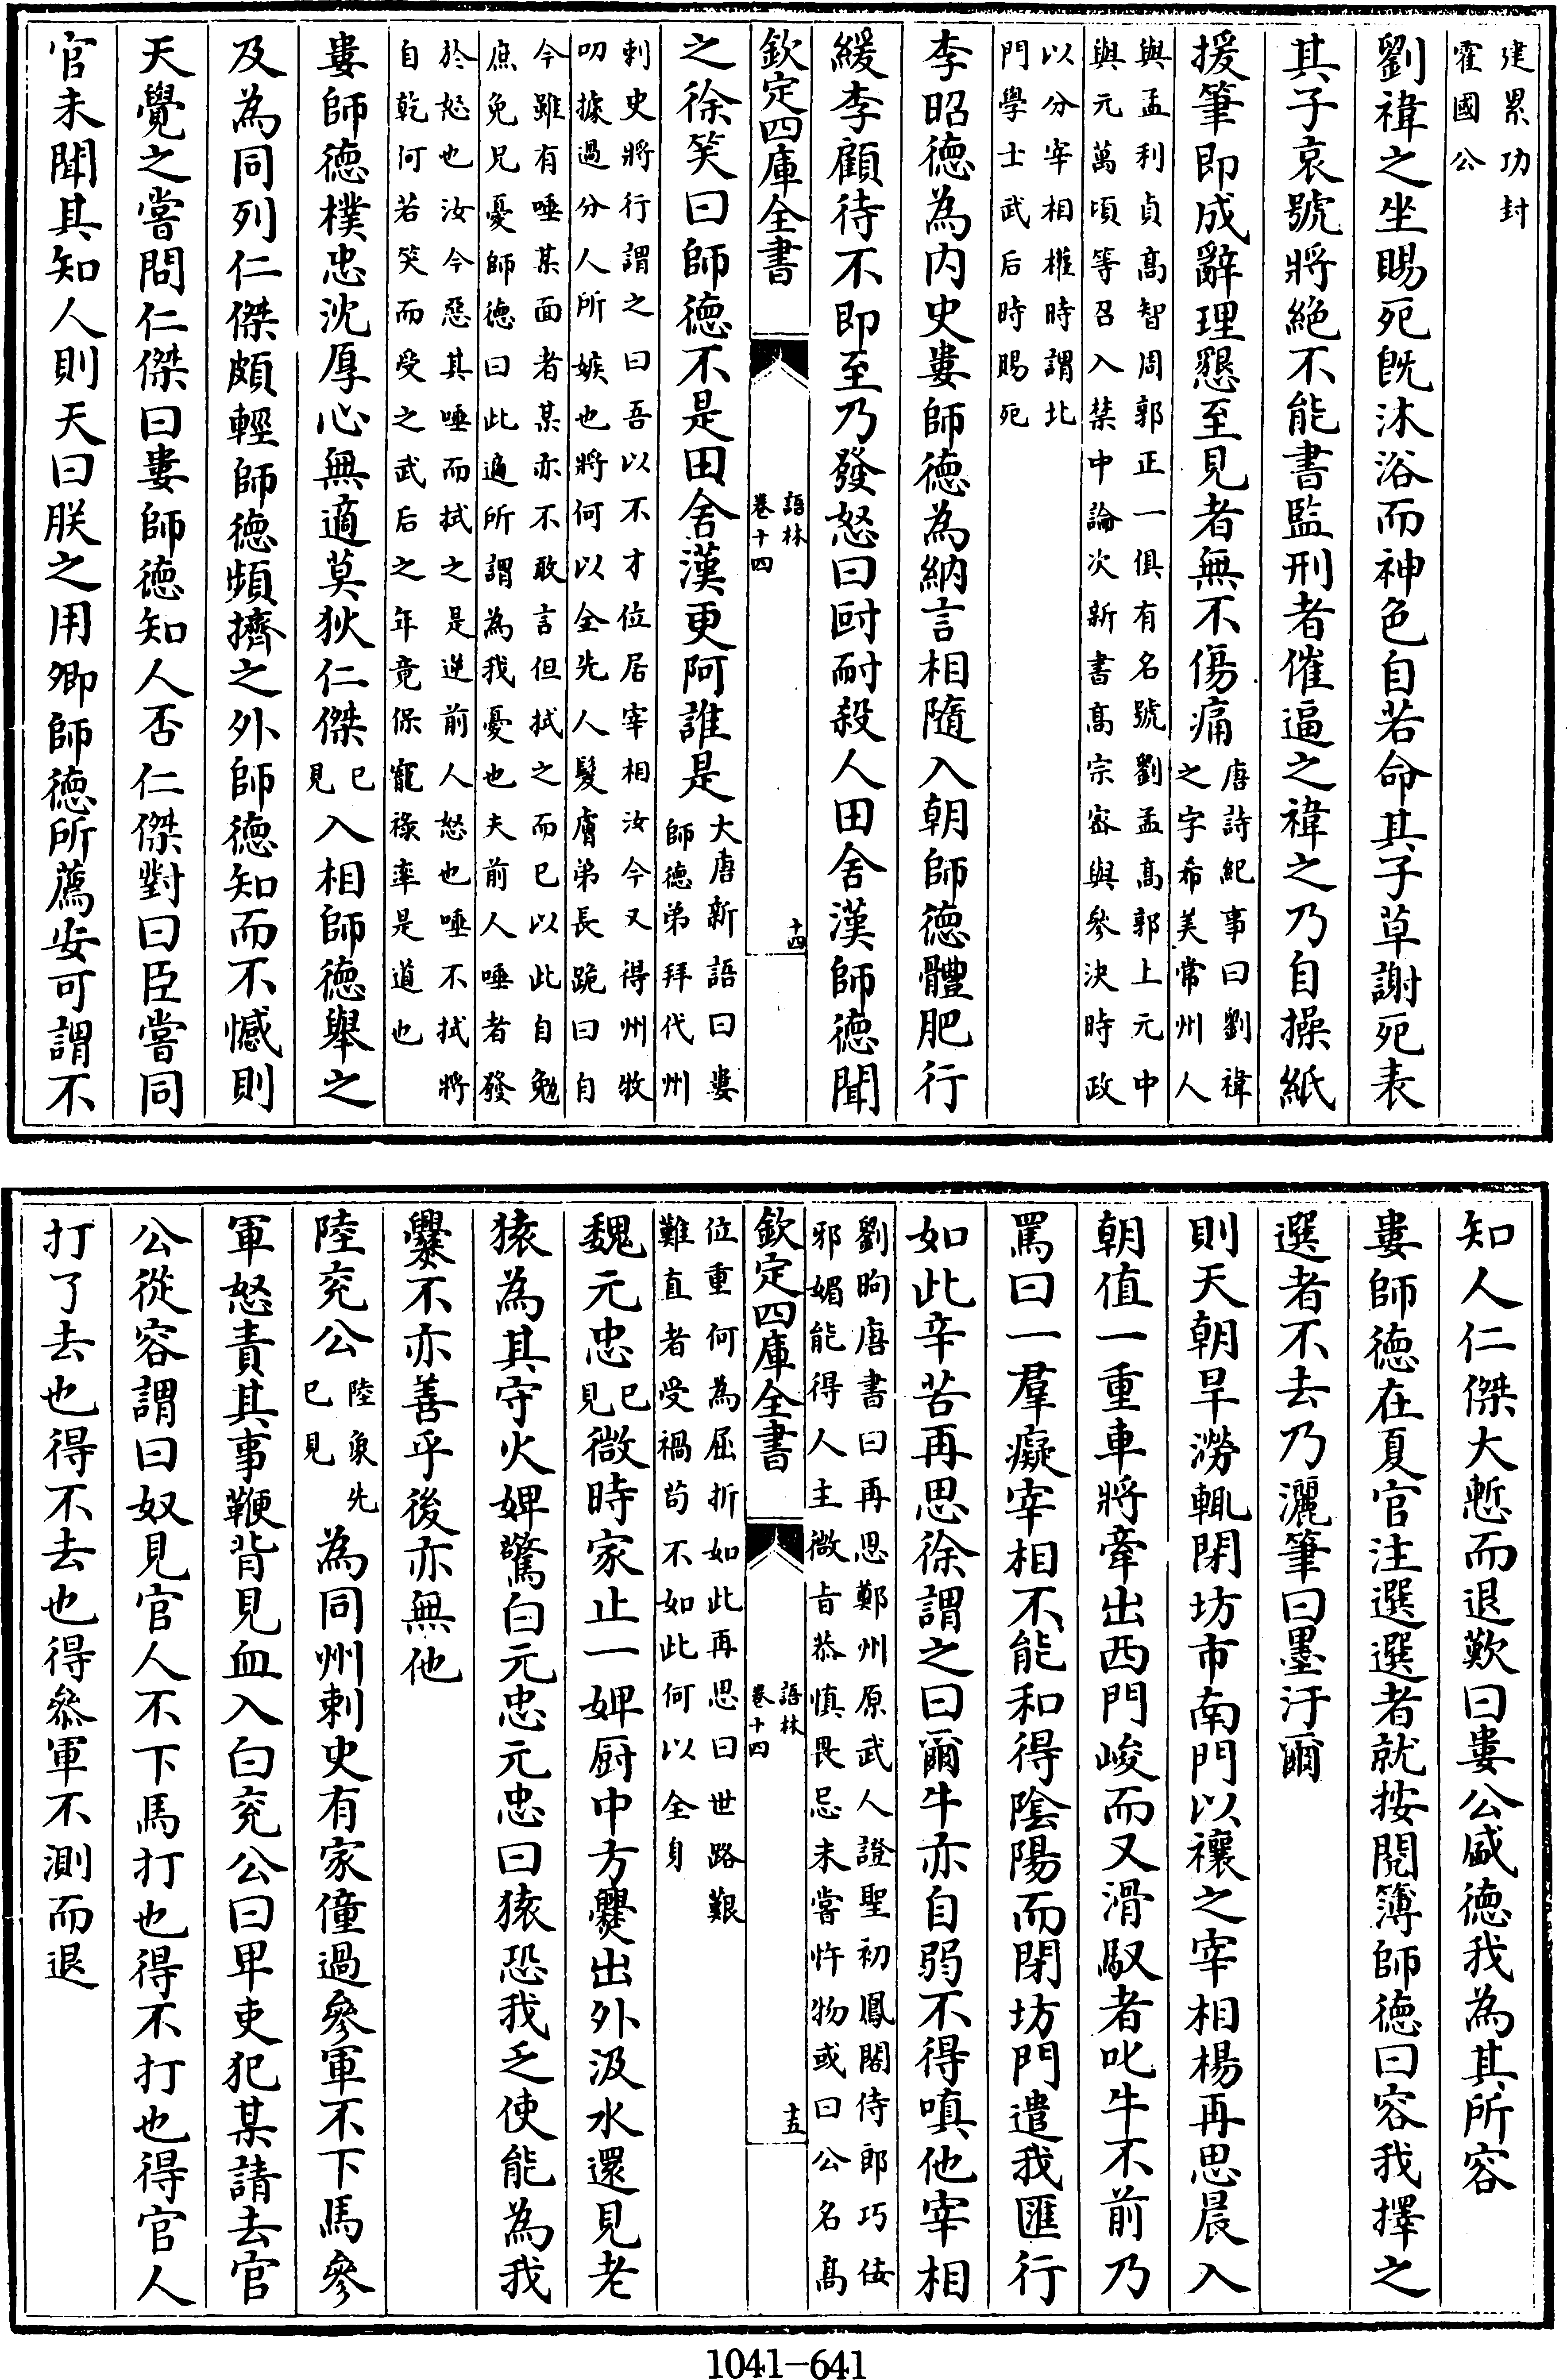 建累功封
霍國公
劉禕之坐賜死旣沐浴而神色自若命其子草謝死表
其子哀號將絶不能書監刑者催逼之禕之乃自操紙
援筆即成辭理懇至見者無不傷痛
唐詩紀事曰劉禕
之字希美常州人
與孟利貞髙智周郭正一俱有名號劉孟髙郭上元中
與元萬頃等召入禁中論次新書髙宗密與參決時政
以分宰相權時謂北
門學士武后時賜死
李昭徳為内史婁師徳為納言相隨入朝師徳體肥行
緩李顧待不即至乃發怒曰叵耐殺人田舍漢師徳聞
欽定四庫全書
語林
卷十四
十四
之徐笑曰師徳不是田舍漢更阿誰是
大唐新語曰婁
師徳弟拜代州
刺史將行謂之曰吾以不才位居宰相汝今又得州牧
叨據過分人所嫉也將何以全先人髮膚弟長跪曰自
今雖有唾某面者某亦不敢言但拭之而已以此自勉
庶免兄憂師徳曰此適所謂為我憂也夫前人唾者發
於怒也汝今惡其唾而拭之是逆前人怒也唾不拭將
自乾何若笑而受之武后之年竟保寵祿率是道也
婁師徳樸忠沈厚心無適莫狄仁傑
已
見
入相師徳舉之
及為同列仁傑頗輕師徳頻擠之外師徳知而不憾則
天覺之嘗問仁傑曰婁師徳知人否仁傑對曰臣嘗同
官未聞其知人則天曰朕之用卿師徳所薦安可謂不
知人仁傑大慙而退歎曰婁公盛徳我為其所容
婁師徳在夏官注選選者就按閱簿師徳曰容我擇之
選者不去乃灑筆曰墨汙爾
則天朝旱澇輒閉坊市南門以禳之宰相楊再思晨入
朝值一重車將牽出西門峻而又滑馭者叱牛不前乃
罵曰一羣癡宰相不能和得陰陽而閉坊門遣我匯行
如此辛苦再思徐謂之曰爾牛亦自弱不得嗔他宰相
劉昫唐書曰再思鄭州原武人證聖初鳳閣侍郎巧佞
邪媚能得人主微旨恭慎畏忌未嘗忤物或曰公名髙
欽定四庫全書
語林
卷十四
十五
位重何為屈折如此再思曰世路艱
難直者受禍茍不如此何以全身
魏元忠
已
見
微時家止一婢厨中方爨出外汲水還見老
猿為其守火婢驚白元忠元忠曰猿恐我乏使能為我
爨不亦善乎後亦無他
陸兖公
陸象先
已見
為同州刺史有家僮過參軍不下馬參
軍怒責其事鞭背見血入白兖公曰卑吏犯某請去官
公從容謂曰奴見官人不下馬打也得不打也得官人
打了去也得不去也得叅軍不測而退
1041-641